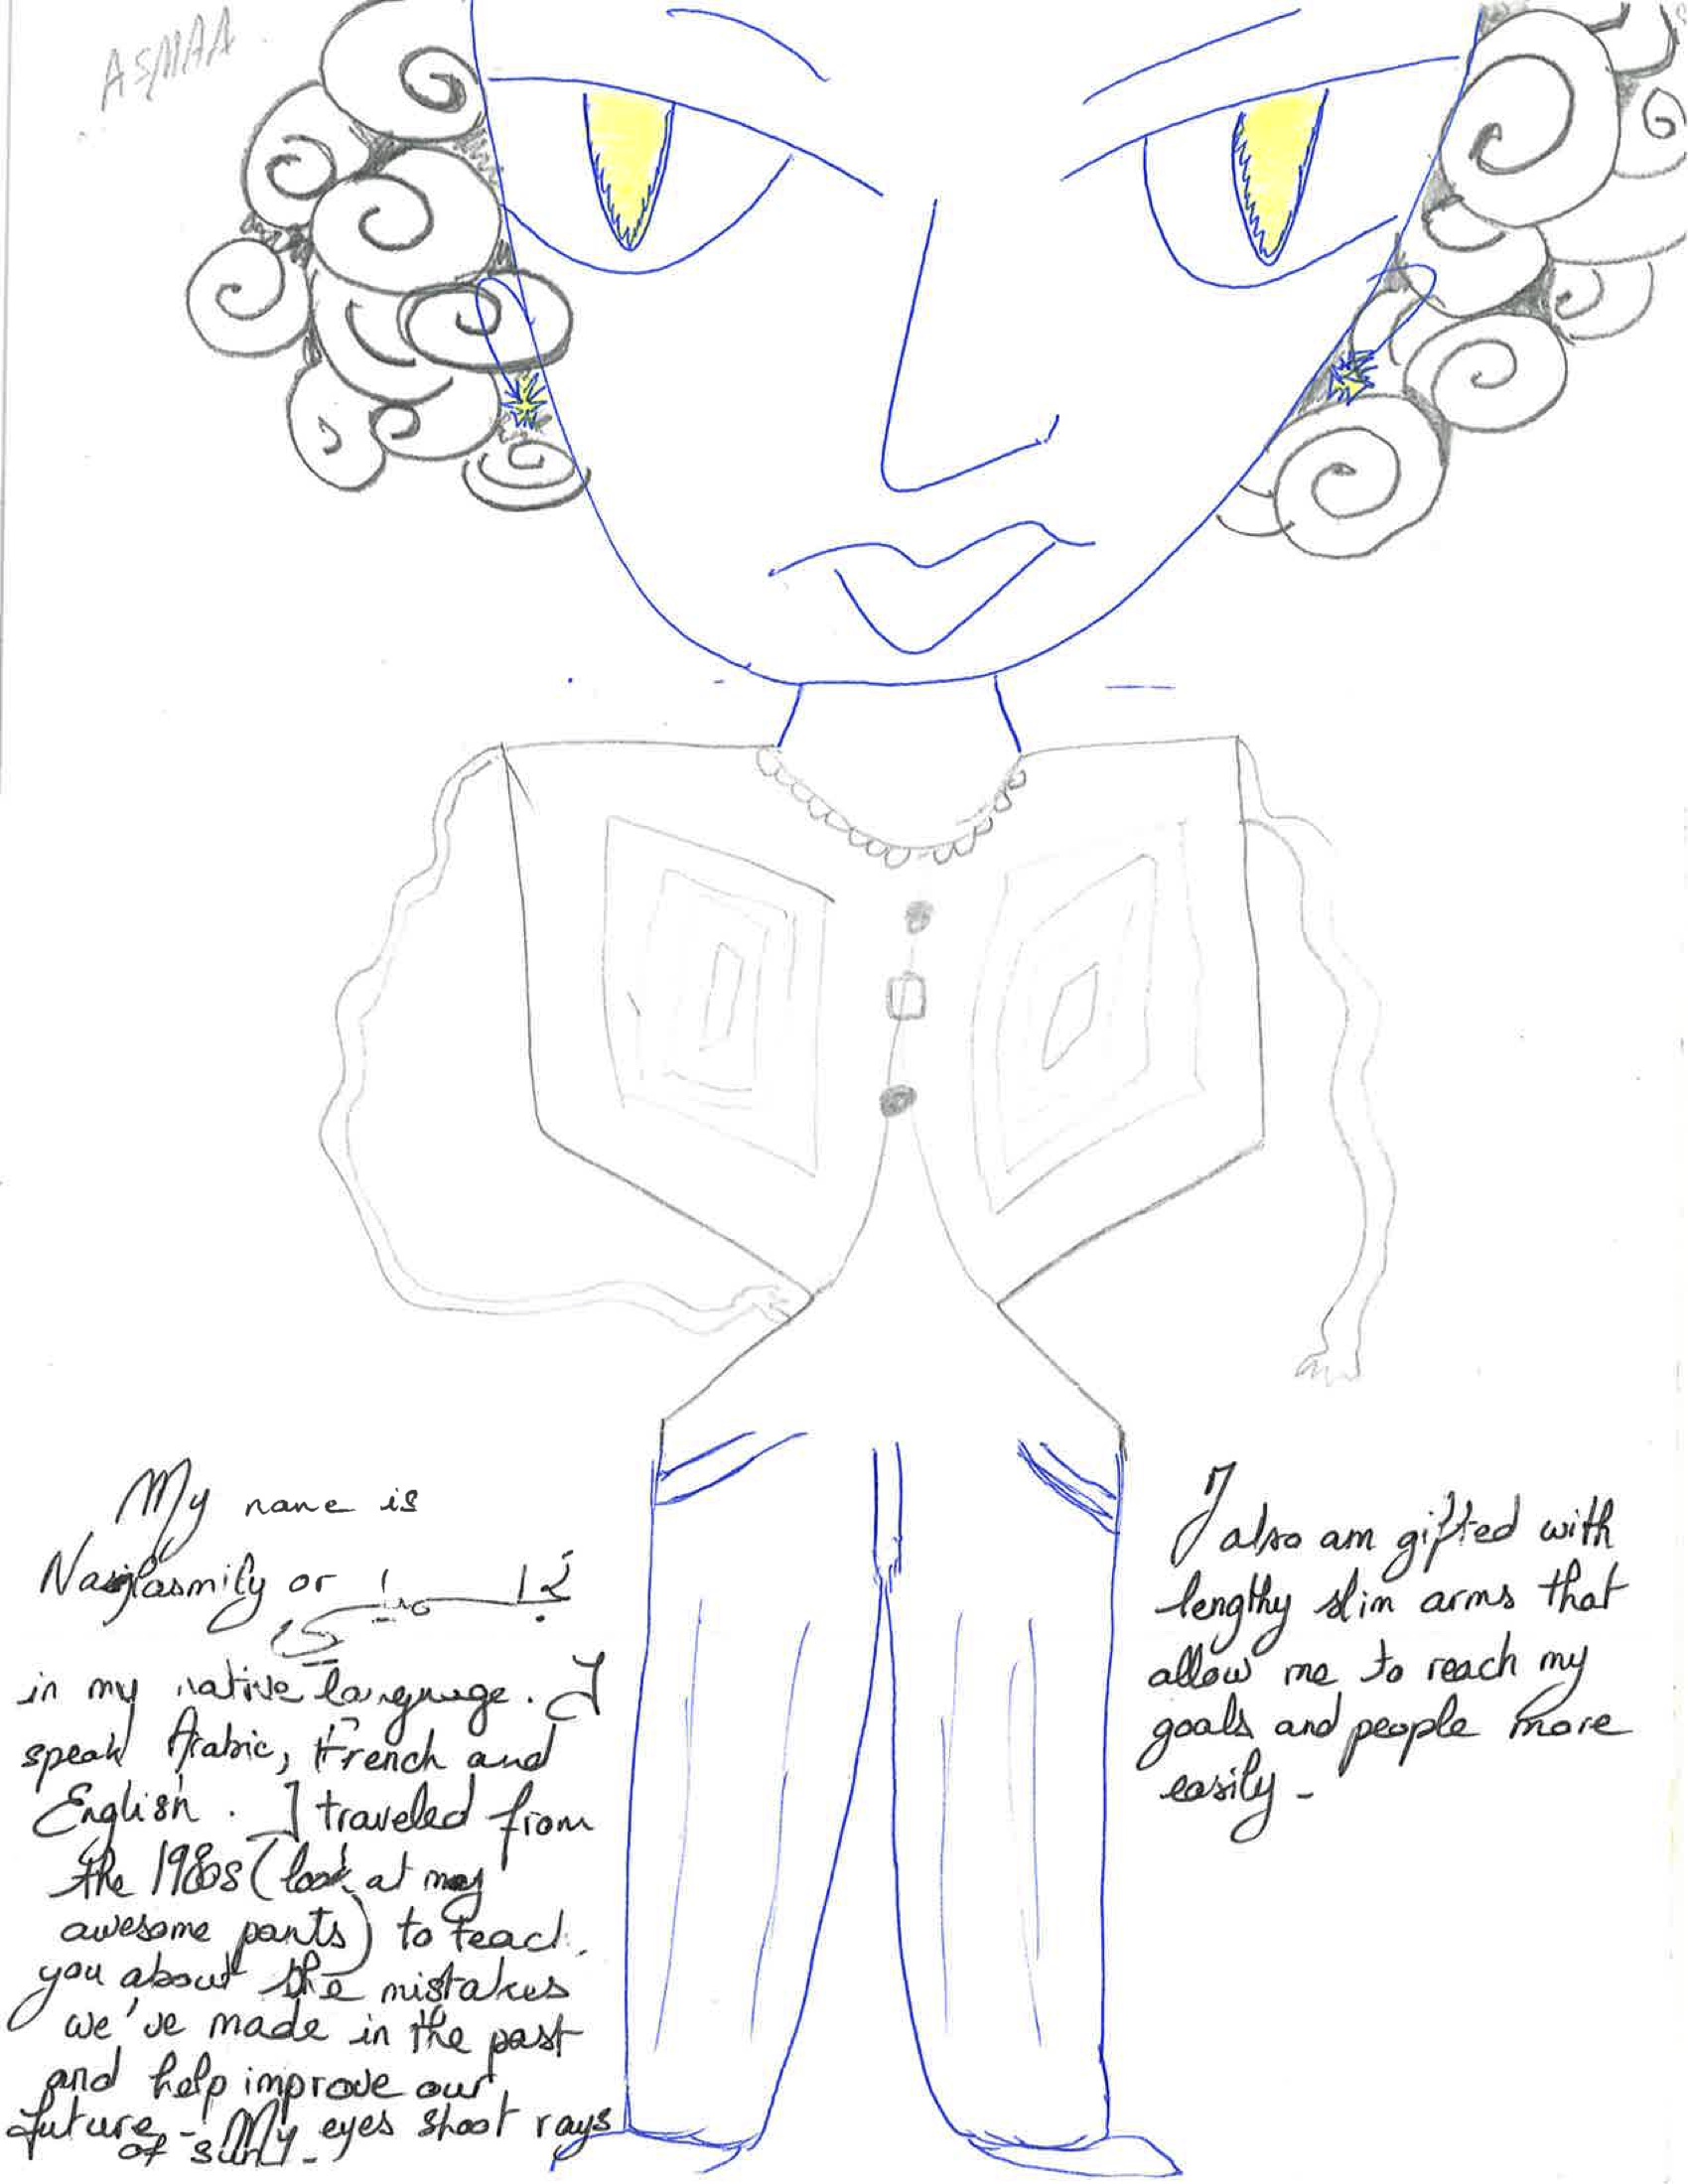 ASMAA
My name is
or
in my native language. I
speak Arabic, French and
English. I traveled from
the 1980s (look at my
awesome pants) to teach
you about the mistakes
we've made in the past
and help improve our
future - My eyes shoot rays
of sun -
I also am gifted with
lengthy slim arms that
allow me to reach my
goals and people more
easily -